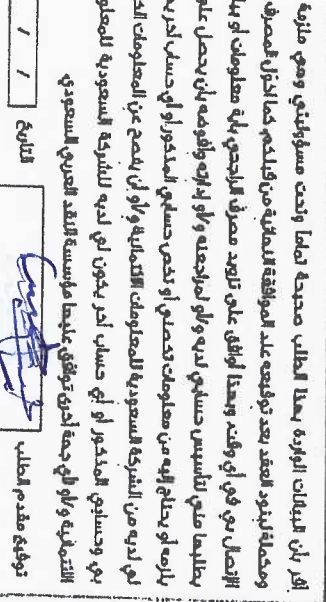 أقر بأن البيانات الواردة بهذا الطلب صحيحة تماماً وتحت مسؤوليتي وهي ملزمة
ومكملة لبنود العقد بعد توقيعه عند الموافقة النهائية من قبلكم كما أخول المصرف
الإتصال بي في أي وقت وبهذا أوافق على تزويد مصرف الراجحي بأية معلومات أو
يطلبها مني لتأسيس حسابي لديه و/أو لمراجعته و/أو إدارته وأفوضه بأن يحصل على
يلزمه أو يحتاج إليه من معلومات تخصني أو تخص حسابي المذكور أو أي حساب آخر
لي لديه من الشركة السعودية للمعلومات الائتمانية و/أو أن يفصح عن المعلومات
بي وحسابي المذكور أو أي حساب آخر يكون لي لديه للشركة السعودية
الائتمانية و/أو لأي جهة أخرى توافق عليها مؤسسة النقد العربي السعودي
توقيع مقدم الطلب
التاريخ / /